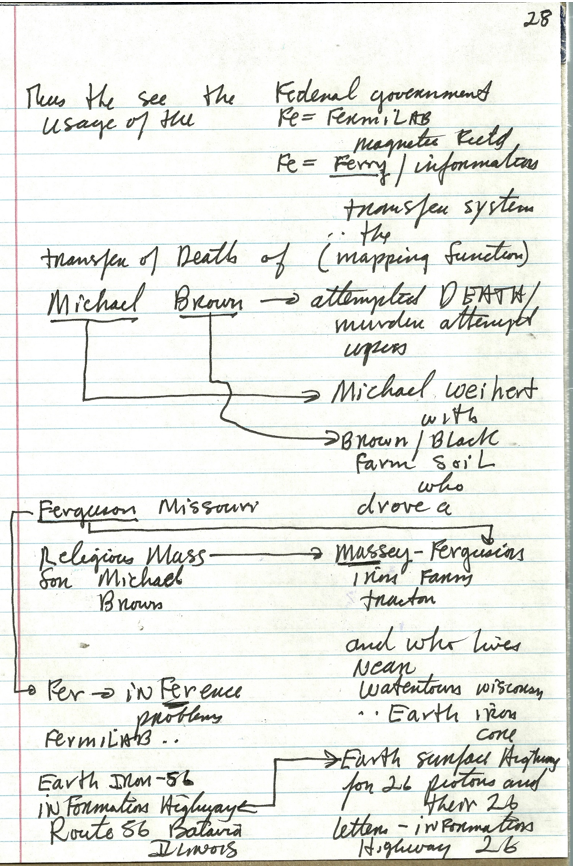 28
Thus the see the Federal government
usage of the Fe = FermiLAB
magnetic field
Fe = Ferry / information
transfer system
∴ the
transfer of Death of (mapping function)
Michael Brown → attempted DEATH/
murder attempted
upon
Michael Weihert
with
Brown / Black
Farm Soil
who
Ferguson Missouri drove a
Religious Mass → Massey-Fergusions
for Michael iron Farm
Brown tractor
and who lives
Near
Fer → in Ference Watertown Wisconsin
problems ∴ Earth iron
FermiLAB .. core
Earth surface Highway
Earth Iron-56 for 26 protons and
inFormation Highway their 26
Route 56 Batavia letters - information
Illinois Highway 26